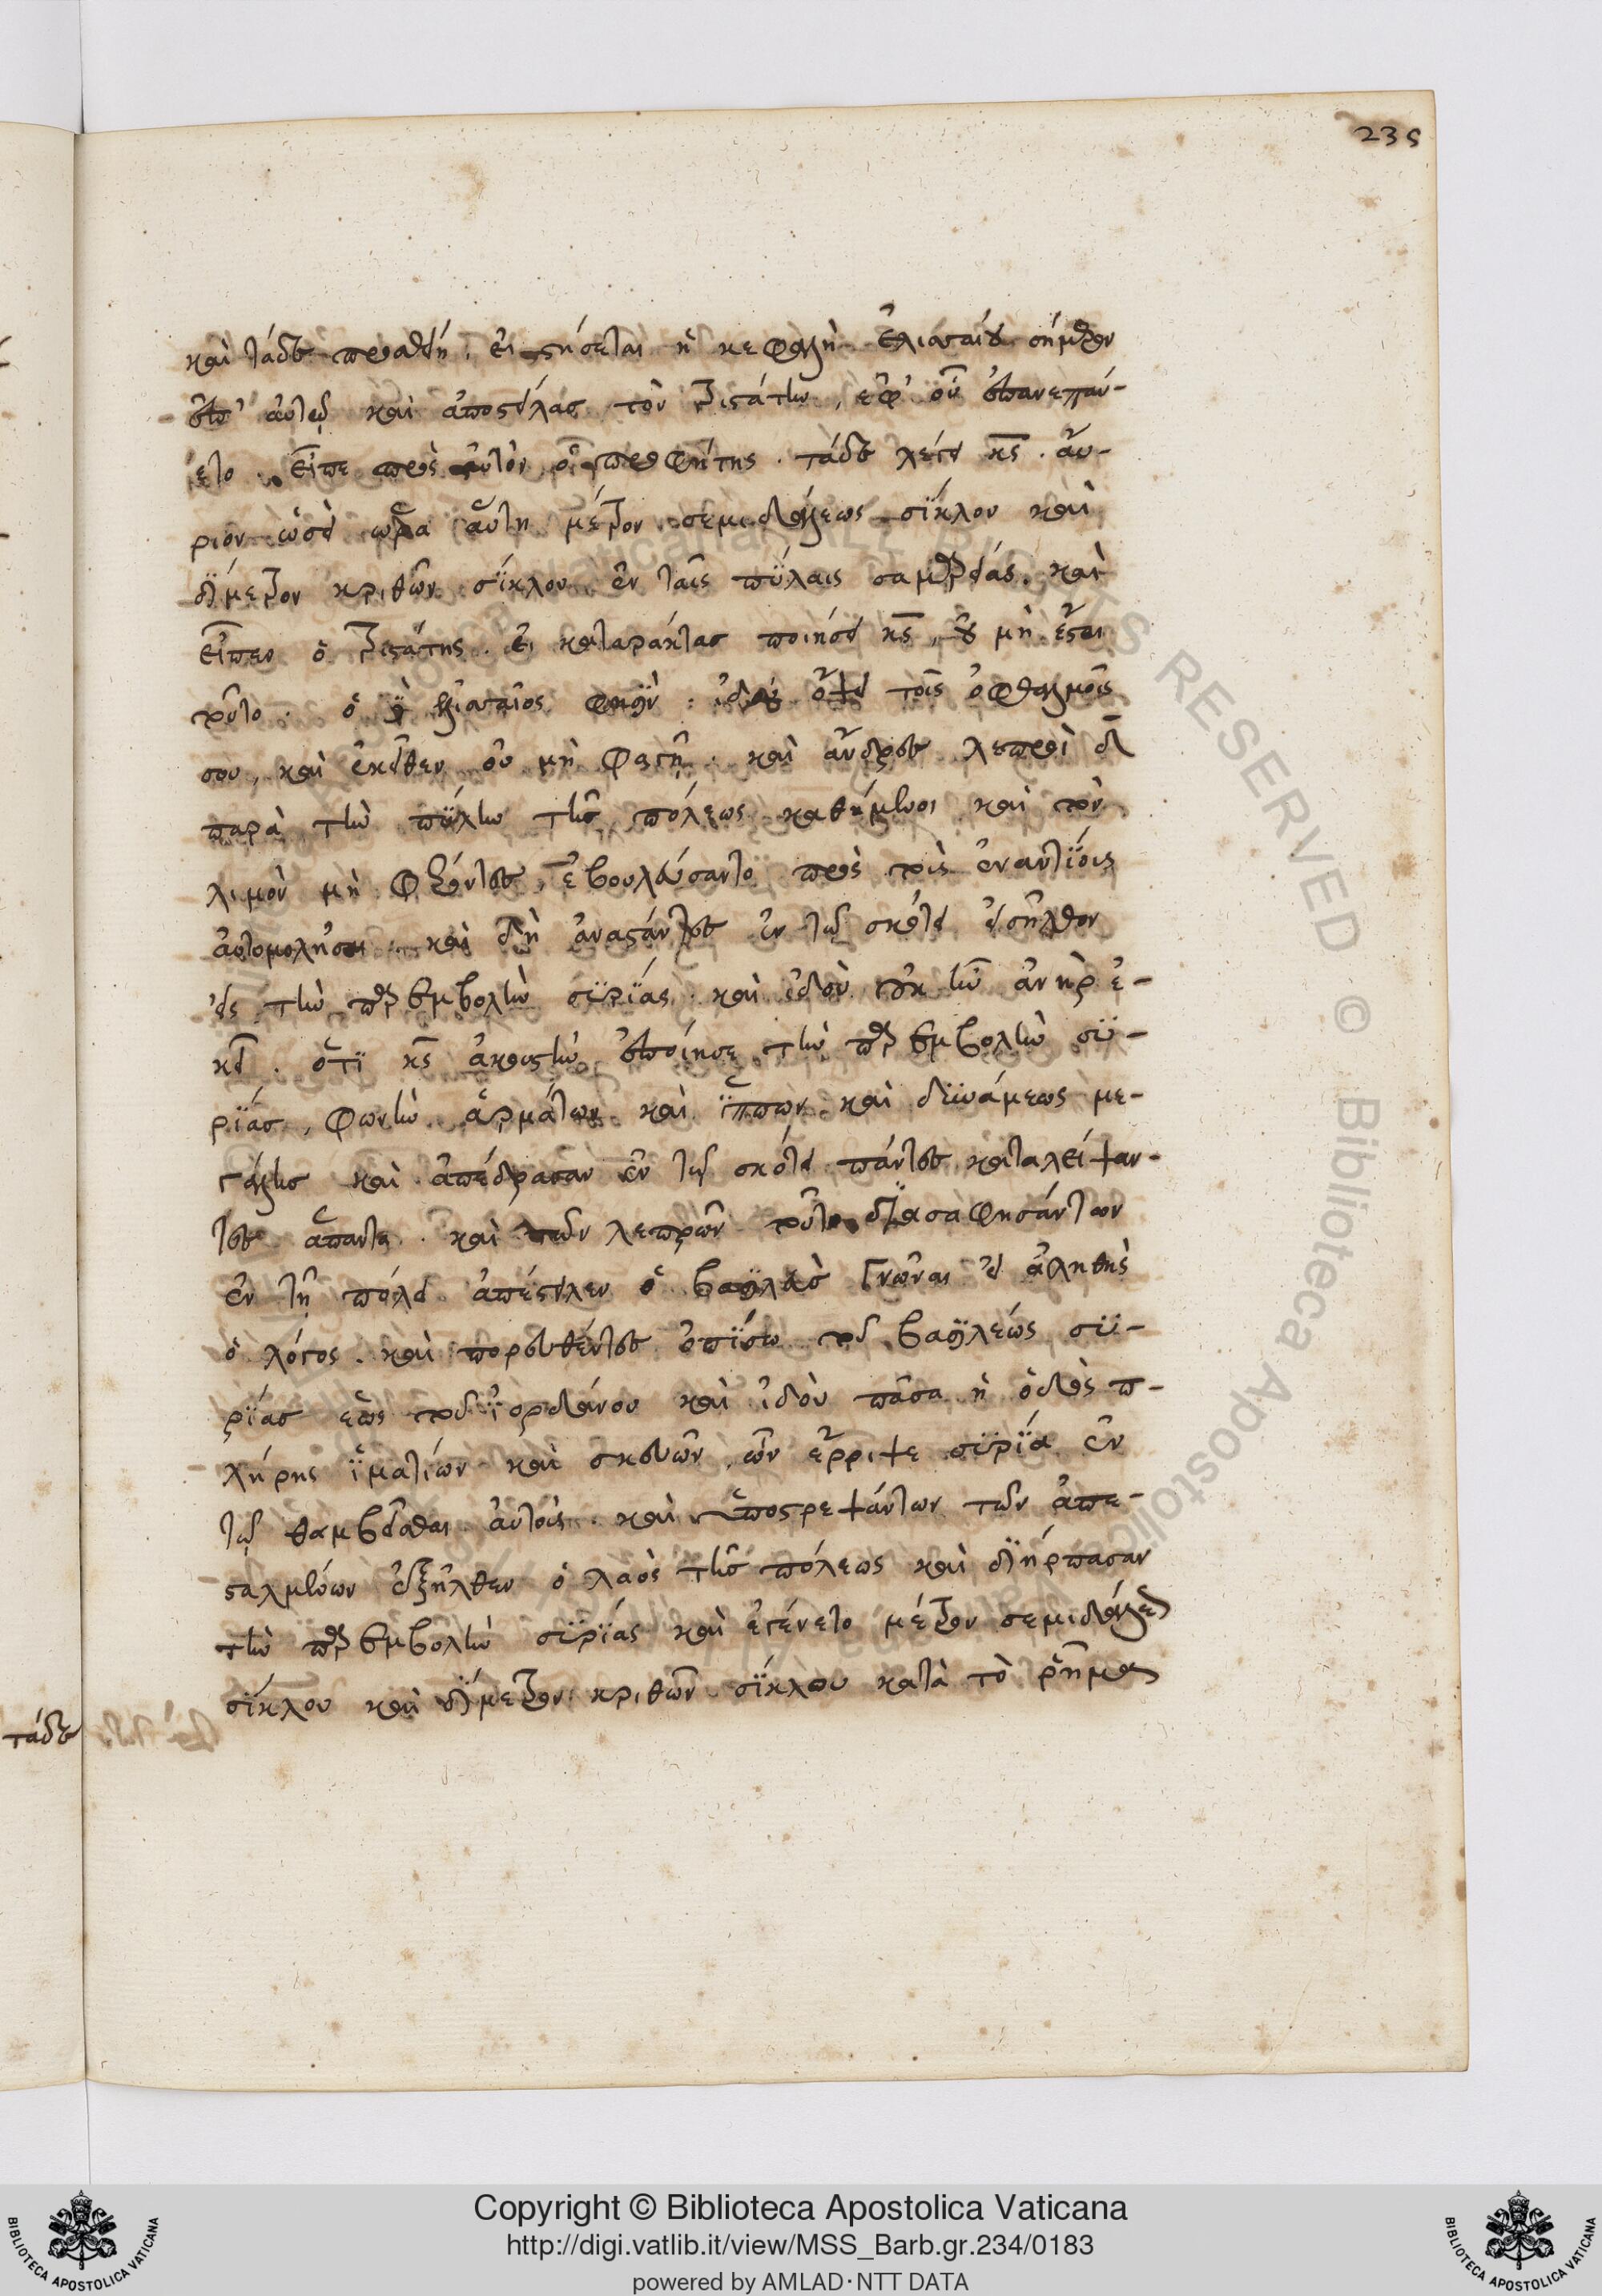 235
καὶ τάδε προσθείη. εἰ στήσεται ἡ κεφαλὴ ἐλισσαίου σήμερον
ἐπ' αὐτῷ καὶ ἀποστείλας τὸν τριστάτην, ἐφ' οὗ ἐπανεπαύ-
ετο. εἶπε πρὸς αὐτὸν ὁ προφήτης. τάδε λέγει κς. αὔ-
ριον ὡσεὶ ὥρα αὕτη μέτρον σεμιδάλεως σίκλου καὶ
δίμετρον κριθῶν σίκλου ἐν ταῖς πύλαις σαμαρείας. καὶ
εἶπεν ὁ τριστάτης. εἰ καταράκτας ποιήσει κς, οὐ μὴ ἔσται
τοῦτο. ὁ δὲ ἐλισσαῖος φησὶν: ἰδοὺ ὄψει τοῖς ὀφθαλμοῖς
σου, καὶ ἐκεῖθεν οὐ μὴ φαγῇ. καὶ ἄνδρες λεπροὶ δ
παρὰ τὴν πύλην τῆς πόλεως καθήμενοι καὶ τὸν
λιμὸν μὴ φέροντες, ἐβουλεύσαντο πρὸς τοὺς ἐναντίους
αὐτομολῆσαι. καὶ δὴ ἀναστάντες ἐν τῷ σκότει εἰσῆλθον
εἰς τὴν παρεμβολὴν συρίας. καὶ ἰδοὺ οὐκ ἦν ἀνὴρ ἐ-
κεῖ. ὅτι κς ἀκουστὴν ἐποίησε τὴν παρεμβολὴν συ-
ρίας, φωνὴν ἁρμάτων καὶ ἵππων καὶ δυνάμεως με-
γάλης καὶ ἀπέδρασαν ἐν τῷ σκότει πάντες καταλείψαν-
τες ἅπαντα. καὶ τῶν λεπρῶν τοῦτο διασαφησάντων
ἐν τῇ πόλει ἀπέστειλεν ὁ βασιλεὺς γνῶναι εἰ ἀληθὴς
ὁ λόγος. καὶ πορευθέντες ὀπίσω τοῦ βασιλέως συ-
ρίας ἕως τοῦ ἰορδάνου καὶ ἰδοὺ πᾶσα ἡ ὁδὸς π-
λήρης ἱματίων καὶ σκευῶν, ὧν ἔρριψε συρία ἐν
τῷ θαμβεῖσθαι αὐτούς. καὶ ὑποστρεψάντων τῶν ἀπε-
σταλμένων ἐξῆλθεν ὁ λαὸς τῆς πόλεως καὶ διήρπασαν
τὴν παρεμβολὴν συρίας καὶ ἐγένετο μέτρον σεμιδάλεως
σίκλου καὶ δίμετρον κριθῶν σίκλου κατὰ τὸ ῥῆμα
τάδε
Copyright © Biblioteca Apostolica Vaticana
http://digi.vatlib.it/view/MSS_Barb.gr.234/0183
powered by AMLAD·NTT DATA
BIBLIOTECA APOSTOLICA VATICANA
BIBLIOTECA APOSTOLICA VATICANA